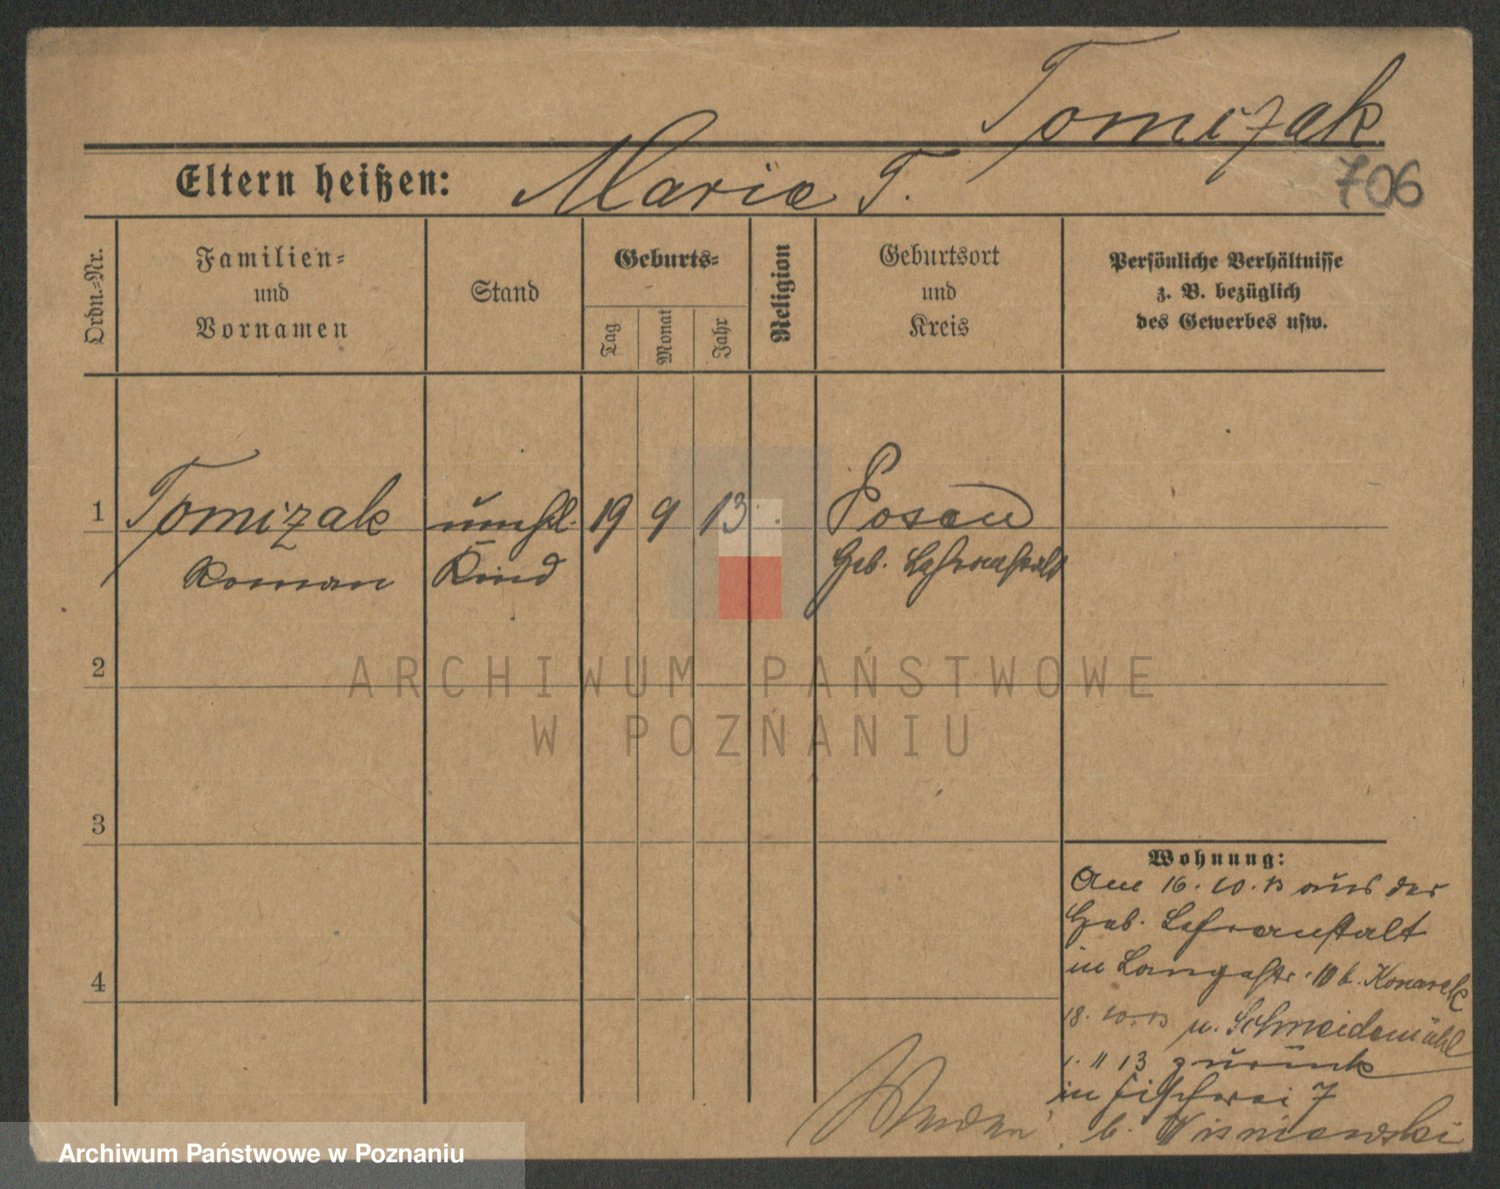 Tomizak
706
Eltern heißen: Marie T.
Ordn.-Nr.
Familien-
und
Vornamen
Stand
Geburts-
Tag
Monat
Jahr
Religion
Geburtsort
und
Kreis
Persönliche Verhältnisse
z. B. bezüglich
des Gewerbes usw.
1 Tomizak unehl. 19 9 13 Posen
Roman Kind Heb. Lehranstalt
2
3
4
Wohnung:
Am 16.10.13 aus der
Heb. Lehranstalt
in Langestr. 10 b. Konarek
18.10.13 n. Schneidemühl
1. 11 13 zurück
in Fischerei 7
b. Wisniewski
ARCHIWUM PAŃSTWOWE
W POZNANIU
Archiwum Państwowe w Poznaniu